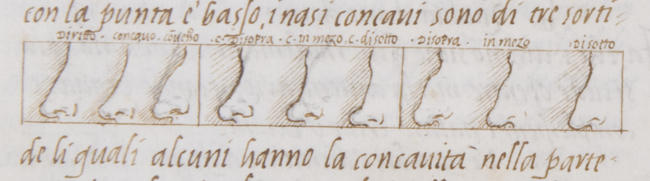 con la punta e' basso, i nasi concavi sono di tre sorti-
Diritto · concavo · coveßo · c · Disopra · c · in mezo · c · disotto · Disopra · in mezo · Disotto
de li quali alcuni hanno la concavita nella parte-